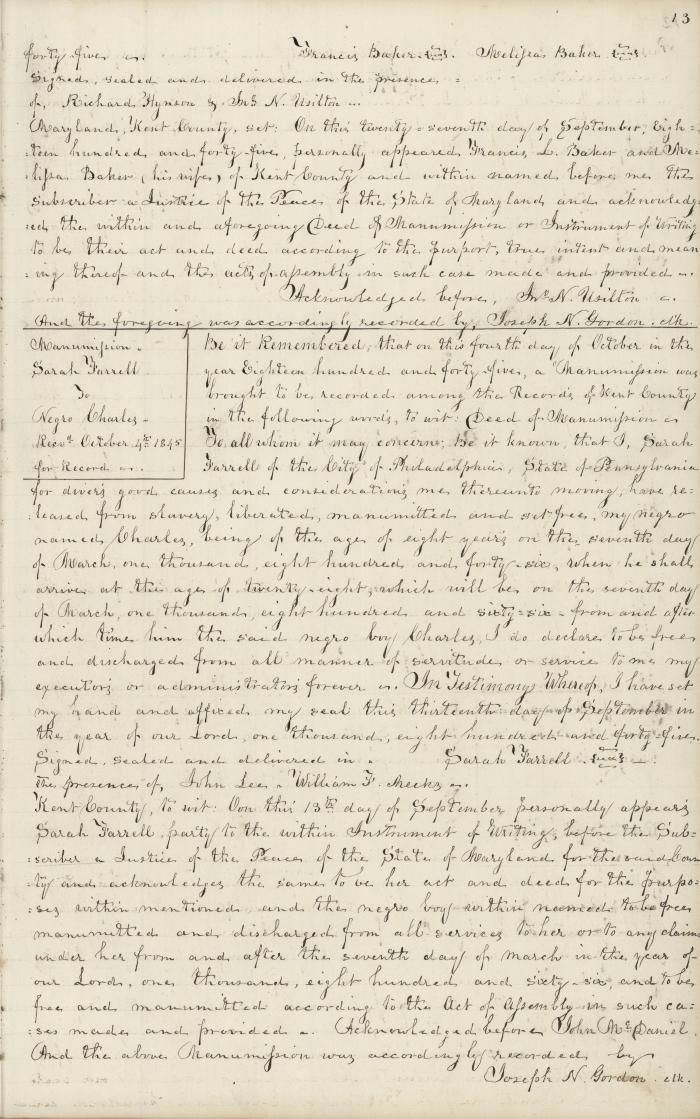 13
forty five. Francis Baker Seal. Melissa Baker Seal
Signed, sealed and delivered in the presence =
of, Richard Hynson & Jno N. Usilton ..
Maryland, Kent County, set: On this twenty=seventh day of September, Eigh=
=teen hundred and forty five, personally appeared Francis L. Baker and Me=
=lissa Baker, (his wife,) of Kent County and within named before me the
subscriber a Justice of the Peace of the State of Maryland and acknowledg=
=ed the within and aforegoing Deed of Manumission or Instrument of Writing
to be their act and deed according to the purport, true intent and mean
=ing thereof and the acts of assembly in such case made and provided ..
Acknowledged before, Jno N. Usilton ..
And the foregoing was accordingly recorded by, Joseph N. Gordon. clk.
Manumission.
Sarah Farrell
To
Negro Charles.
Recd October 4th 1845
for Record ..
Be it Remembered, that on this fourth day of October in the
year Eighteen hundred and forty five, a Manumission was
brought to be recorded among the Records of Kent County
in the following words, to wit: Deed of Manumission ..
To all whom it may concern; Be it known, that I, Sarah
Farrell of the City of Philadelphia, State of Pennsylvania
for divers good causes and considerations me thereunto moving, have re=
=leased from slavery, liberated, manumitted and set free, my negro
named Charles, being of the age of eight years on the seventh day
of March, one thousand, eight hundred and forty-six, when he shall
arrive at the age of twenty-eight, which will be on the seventh day
of March, one thousand, eight hundred and sixty=six - from and after
which time him the said negro boy Charles, I do declare to be free
and discharged from all manner of servitude or service to me my
executors or administrators forever .. In Testimony Whereof, I have set
my hand and affixed my seal this thirteenth day of September in
the year of our Lord, one thousand, eight hundred and forty-five.
Signed, sealed and delivered in . Sarah Farrell. Seal
the presence of, John Lee. William F. Meeks ..
Kent County, to wit: On this 13th day of September personally appears
Sarah Farrell, party to the within Instrument of Writing, before the Sub=
=scriber a Justice of the Peace of the State of Maryland for the said Coun
=ty and acknowledges the same to be her act and deed for the purpo=
=ses within mentioned, and the negro boy within named to be free
manumitted and discharged from all services to her or to any claim
under her from and after the seventh day of March in the year of
our Lord, one thousand, eight hundred and sixty-six, and to be
free and manumitted according to the Act of Assembly in such ca=
=ses made and provided .. Acknowledged before John Mc.Daniel.
And the above Manumission was accordingly recorded by
Joseph N. Gordon. clk.